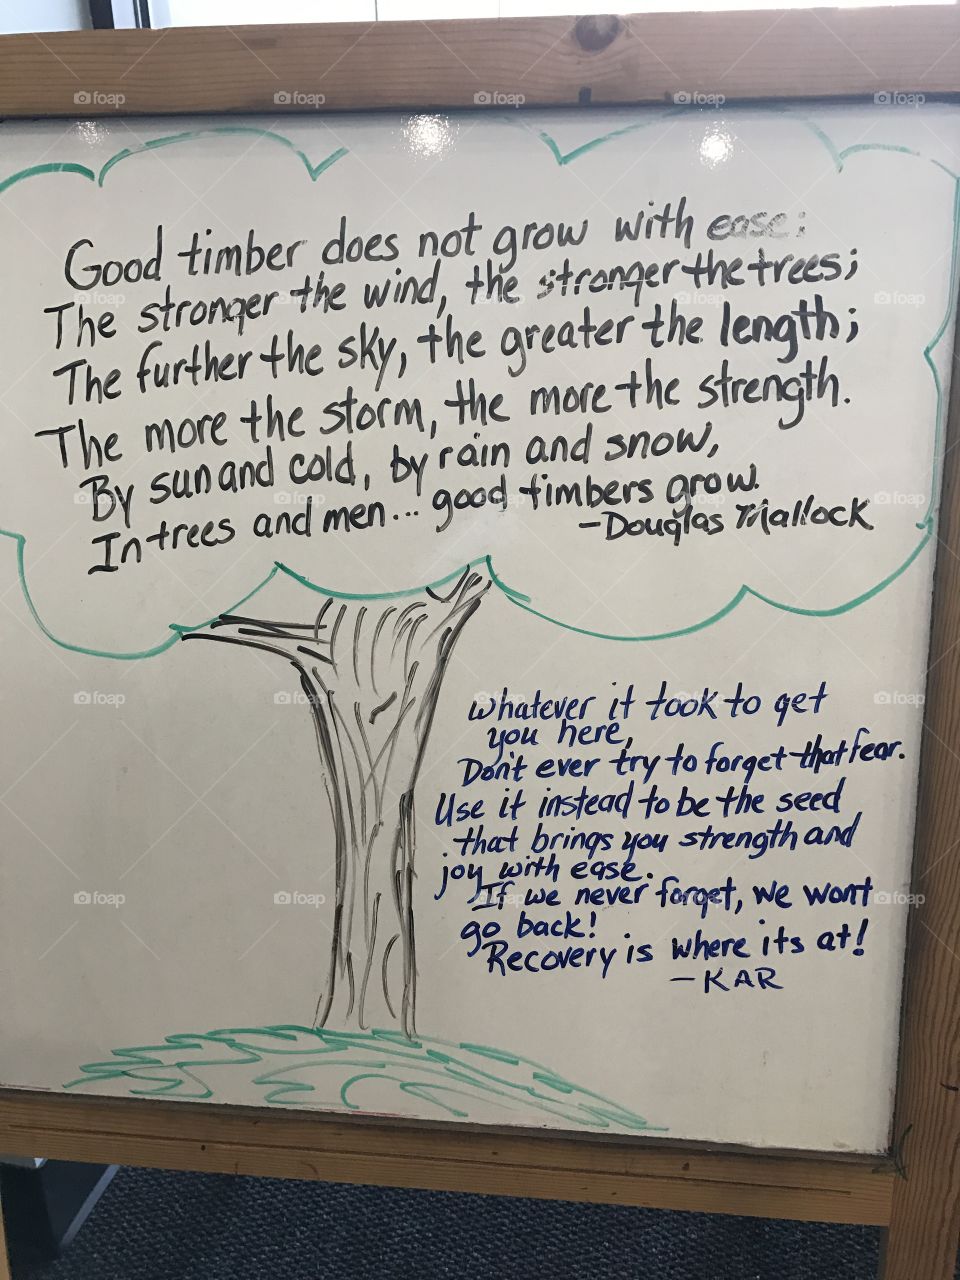 Good timber does not grow with ease:
The stronger the wind, the stronger the trees;
The further the sky, the greater the length;
The more the storm, the more the strength.
By sun and cold, by rain and snow,
In trees and men... good timbers grow.
-Douglas Mallock
Whatever it took to get
you here,
Don't ever try to forget that fear.
Use it instead to be the seed
that brings you strength and
joy with ease.
If we never forget, we wont
go back!
Recovery is where its at!
-KAR